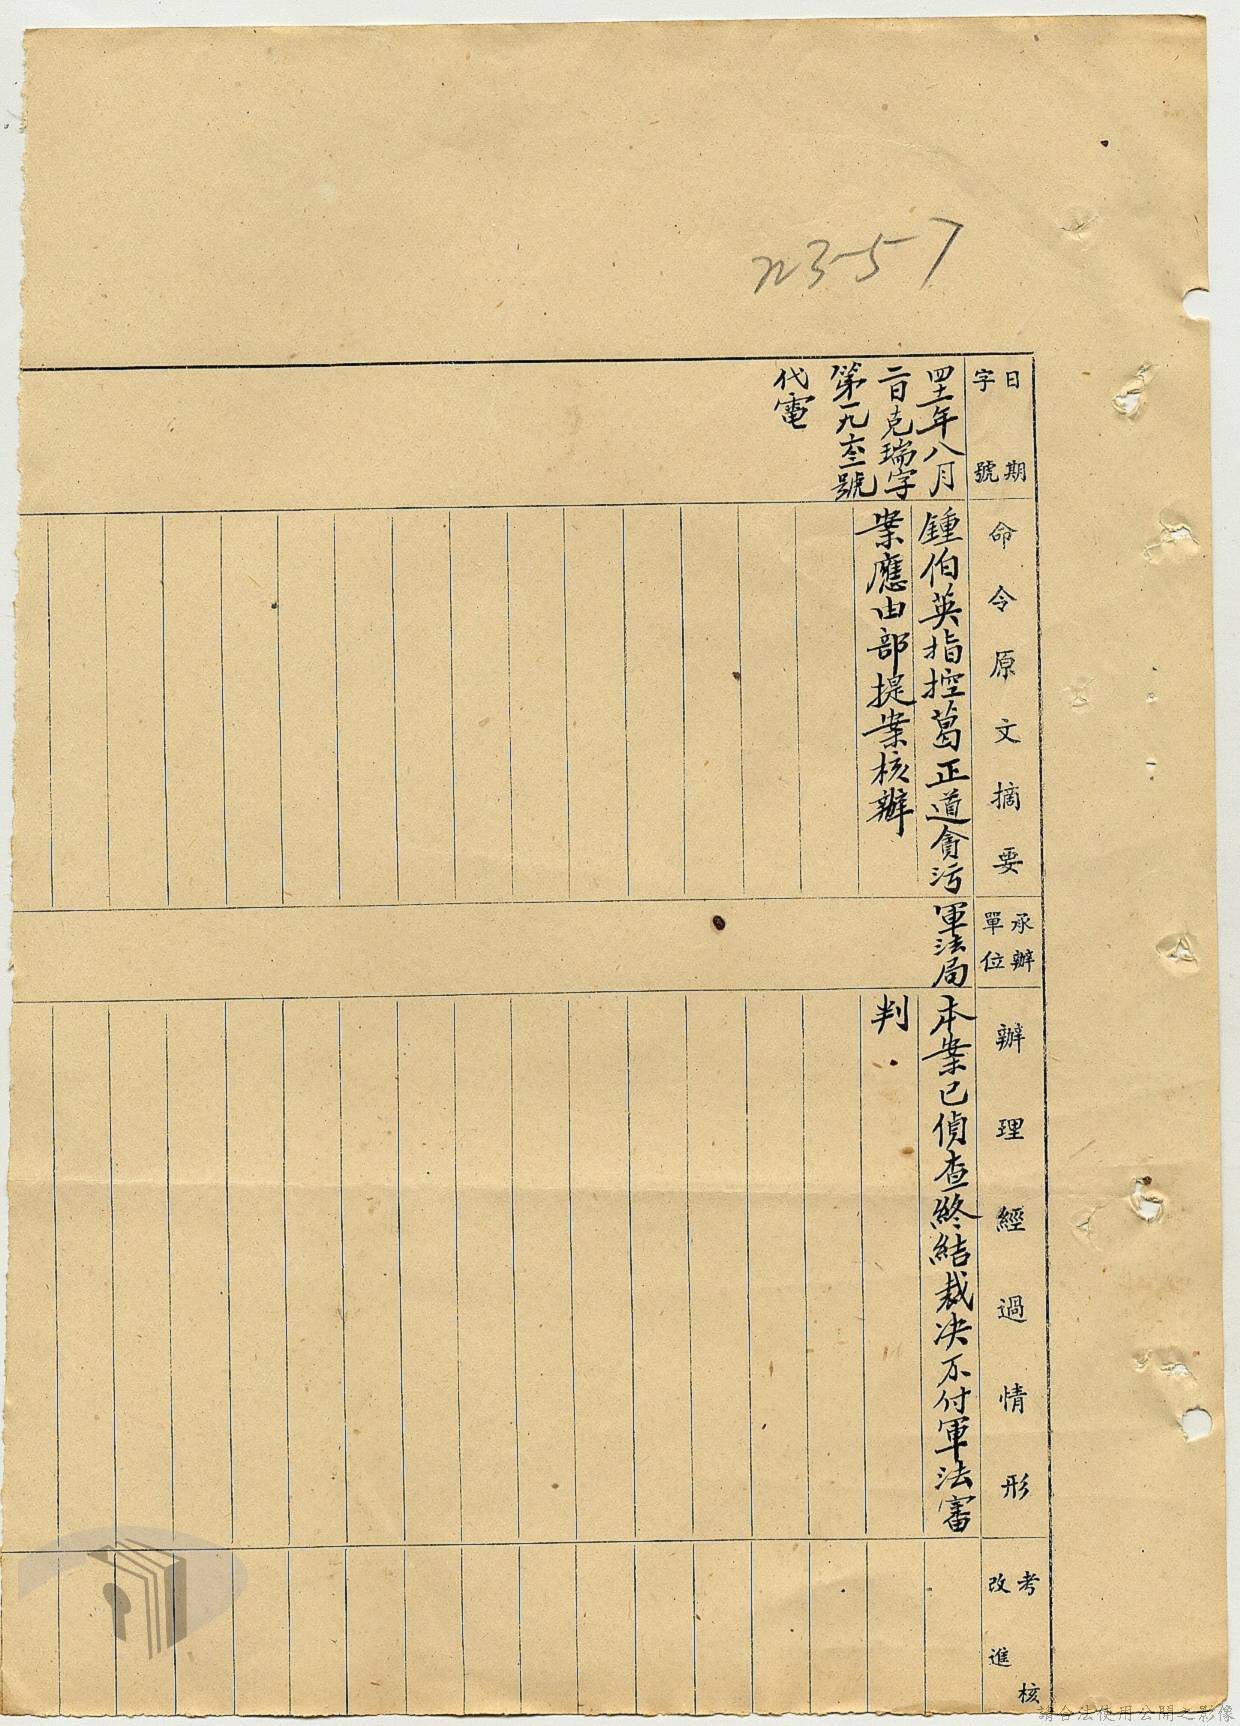 n3-57
日期
字號
命令原文摘要
承辦
單位
辦理經過情形
考核
改進
四十一年八月
二日克瑞字
第一九六二號
代電
鍾伯英指控葛正道貪污
案應由部提案核辦
軍法局
本案已偵查終結裁決不付軍法審
判
請合法使用公開之影像